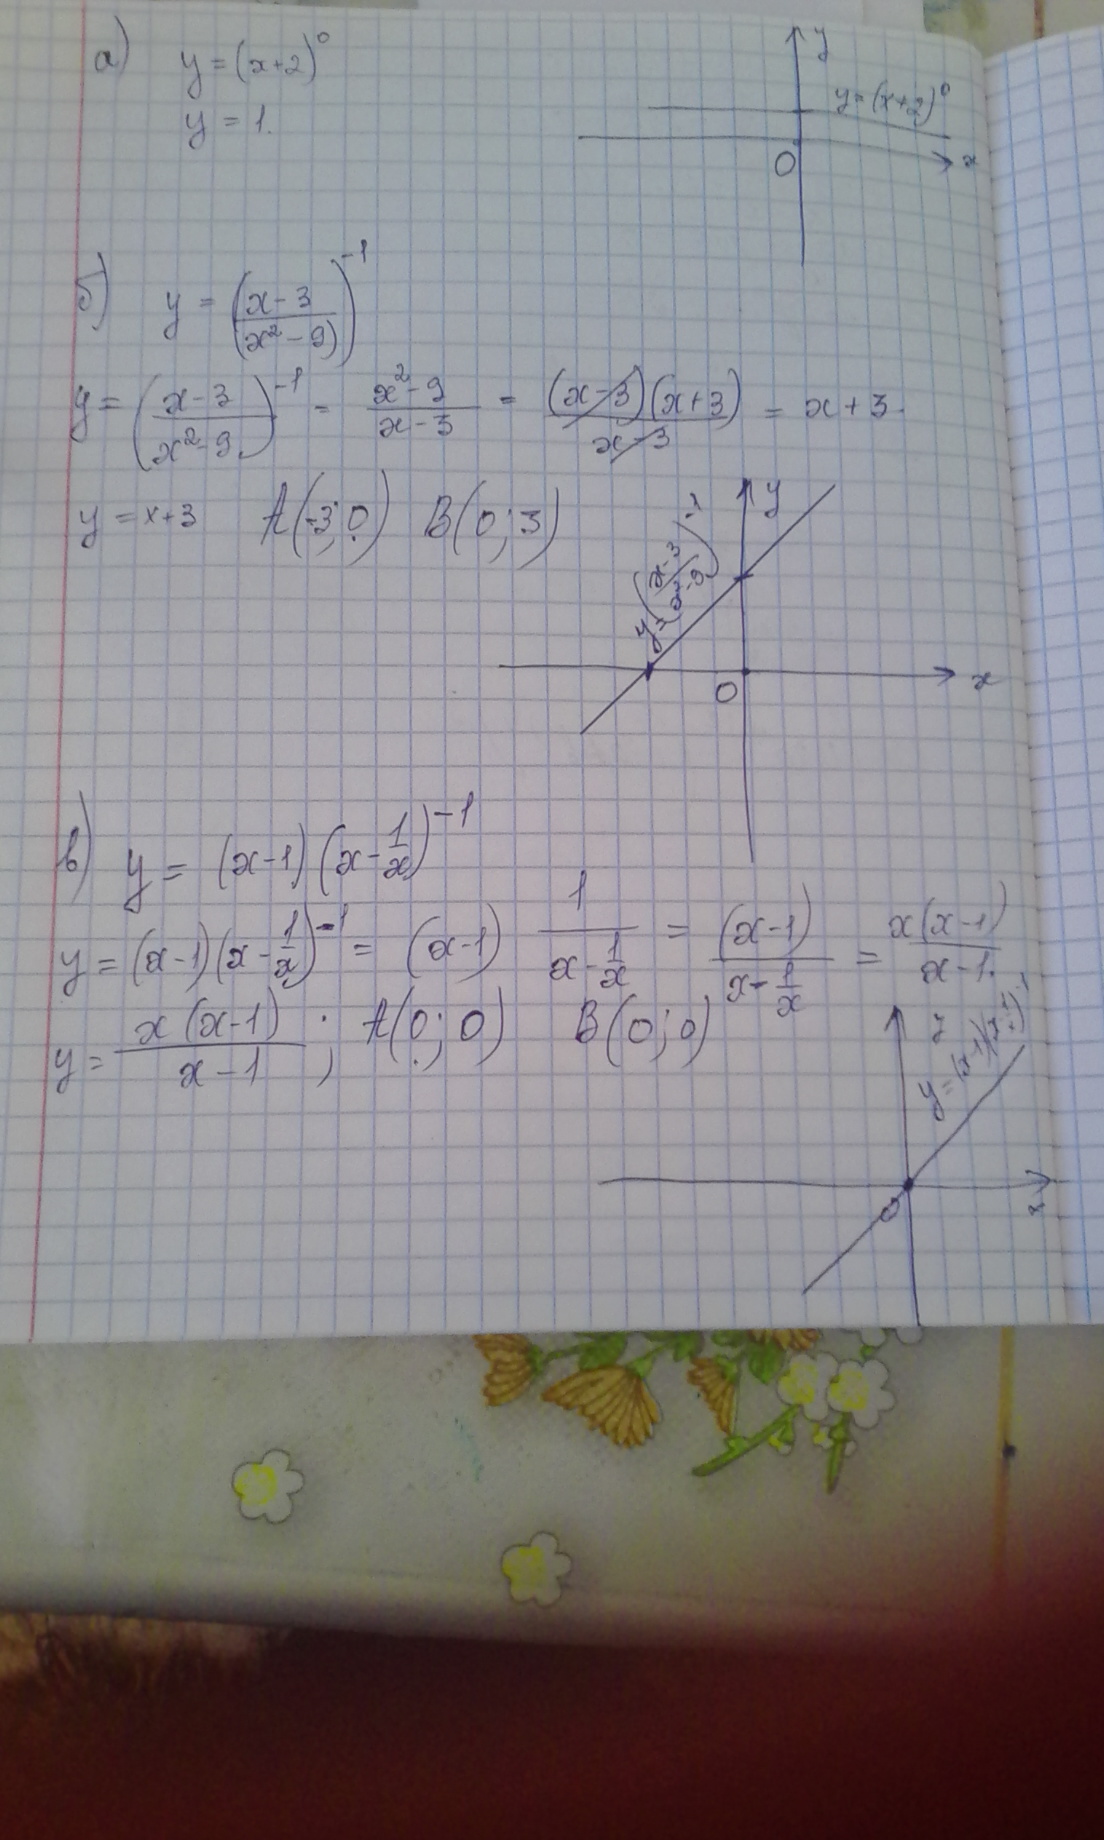 а) y = (x+2)^0
y = 1.
y
y = (x+2)^0
0
x
б) y = ((x-3)/(x^2-9))^-1
y = ((x-3)/(x^2-9))^-1 = (x^2-9)/(x-3) = ((x-3)(x+3))/(x-3) = x+3.
y = x+3 A(-3; 0) B(0; 3)
y
y = ((x-3)/(x^2-9))^-1
0
x
в) y = (x-1)(x-1/x)^-1
y = (x-1)(x-1/x)^-1 = (x-1) 1/(x-1/x) = (x-1)/(x-1/x) = x(x-1)/(x-1.)
y = x(x-1)/(x-1); A(0; 0) B(0; 0)
y = (x-1)(x-1/x)^-1
0
x